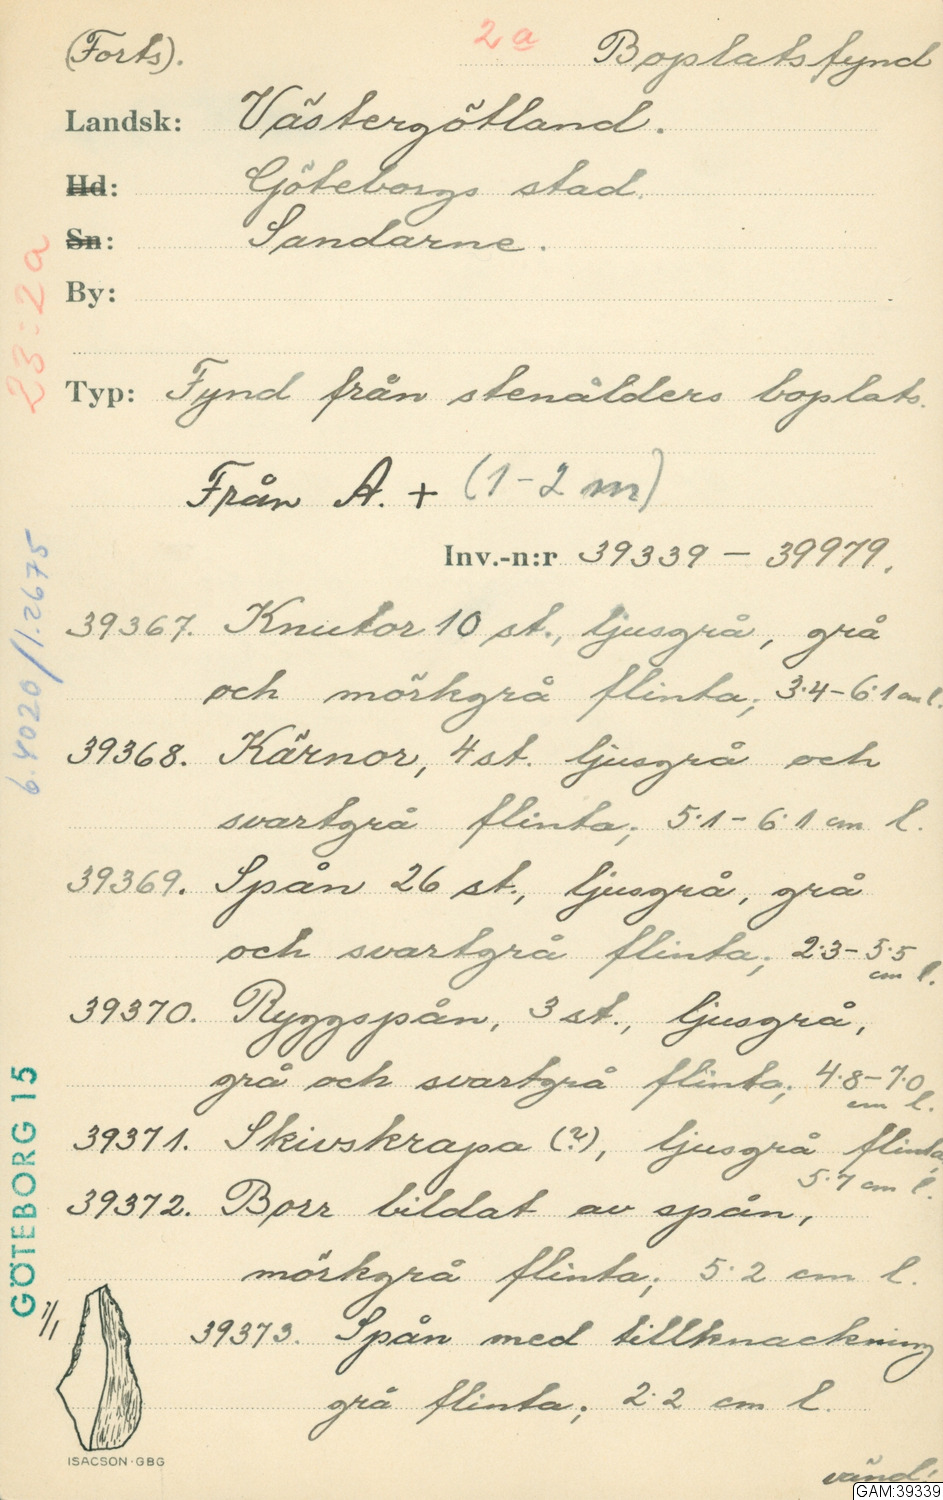 (Forts).
2a
Boplatsfynd
Landsk: Västergötland.
Hd: Göteborgs stad.
Sn: Sandarne.
By:
23:2a
Typ: Fynd från stenålders boplats.
Från A. + (1-2 m)
Inv.-n:r 39339 — 39979.
6.4020/1.2675
39367. Knutor 10 st., ljusgrå, grå
och mörkgrå flinta; 3·4-6·1 cm l.
39368. Kärnor, 4 st. ljusgrå och
svartgrå flinta; 5·1-6·1 cm l.
39369. Spån 26 st., ljusgrå, grå
och svartgrå flinta; 2·3-5·5
cm l.
39370. Ryggspån, 3 st., ljusgrå,
grå och svartgrå flinta; 4·8-7·0
cm l.
39371. Skivskrapa (?), ljusgrå flinta;
5·7 cm l.
39372. Borr bildat av spån,
mörkgrå flinta; 5·2 cm l.
GÖTEBORG 15
1/1
39373. Spån med tillknackning
grå flinta; 2·2 cm l.
ISACSON·GBG
vänd!
GAM:39339